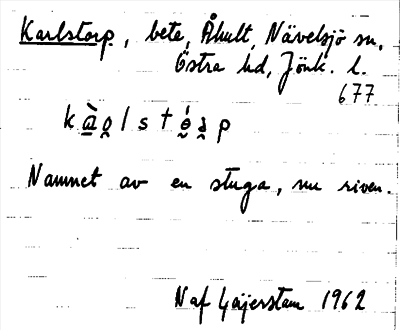 Karlstorp, bete, Åkult, Nävelsjö sn,
Östra hd, Jönk. l.
677
Namnet av en stuga, nu riven.
N af Geijerstam 1962